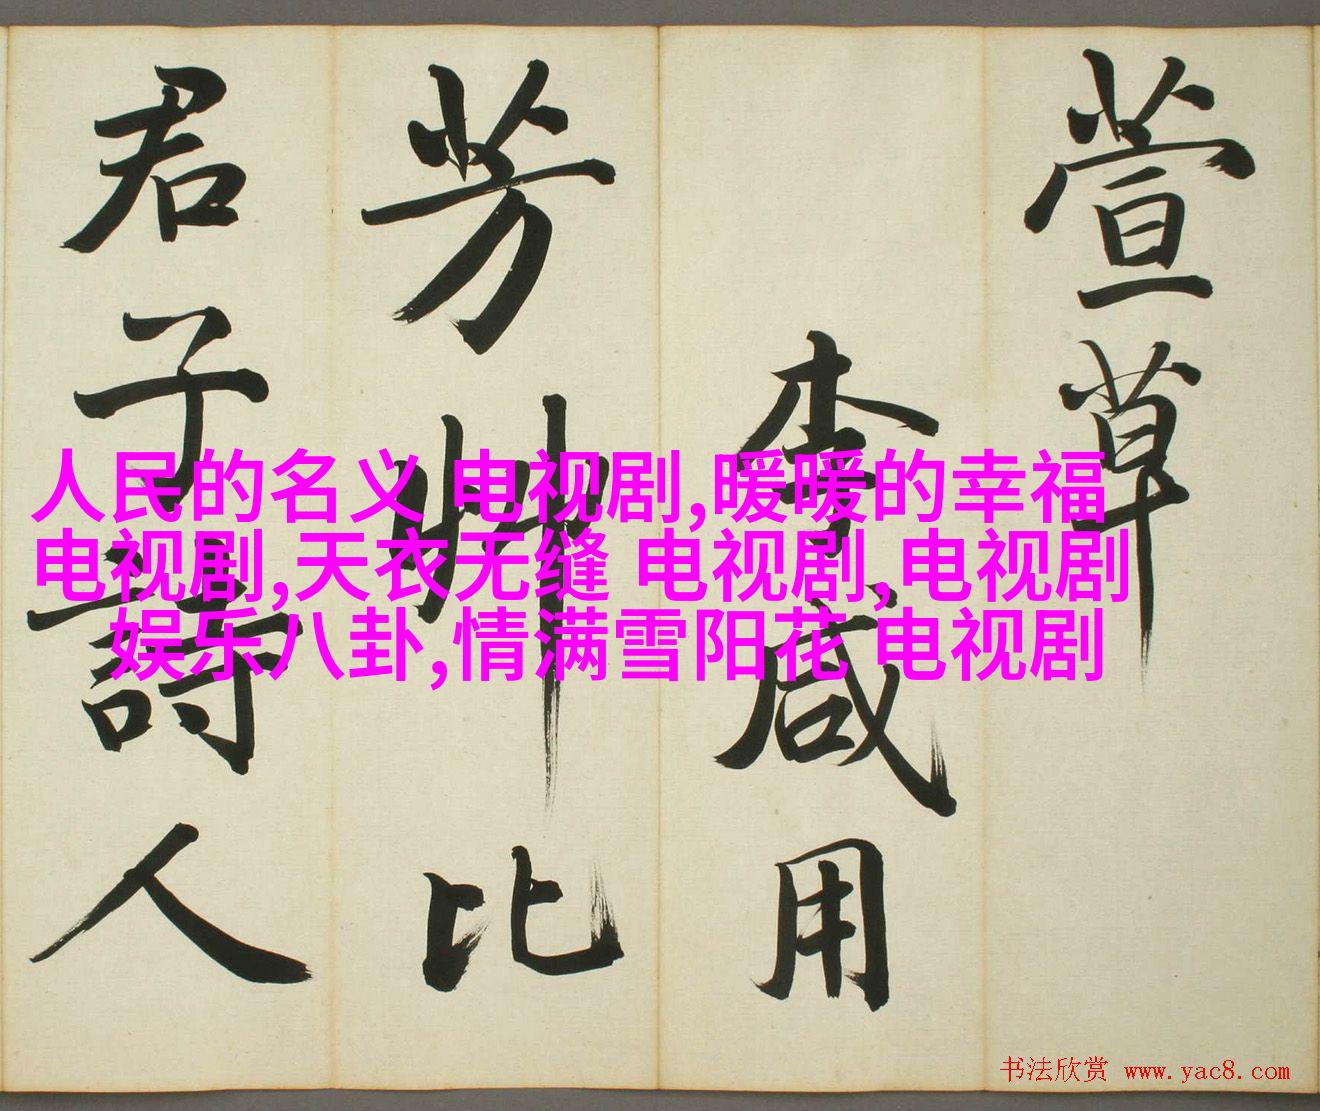 萱草
李咸用
芳艸比
君子詩人
人民的名义 电视剧,暖暖的幸福
电视剧,天衣无缝 电视剧,电视剧
娱乐八卦,情满雪阳花 电视剧
书法欣赏 www.yac8.com